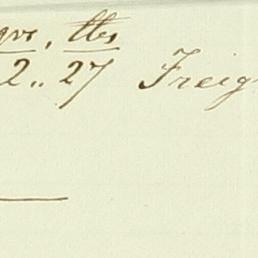 qrs, lbs
2.. 27 Freig